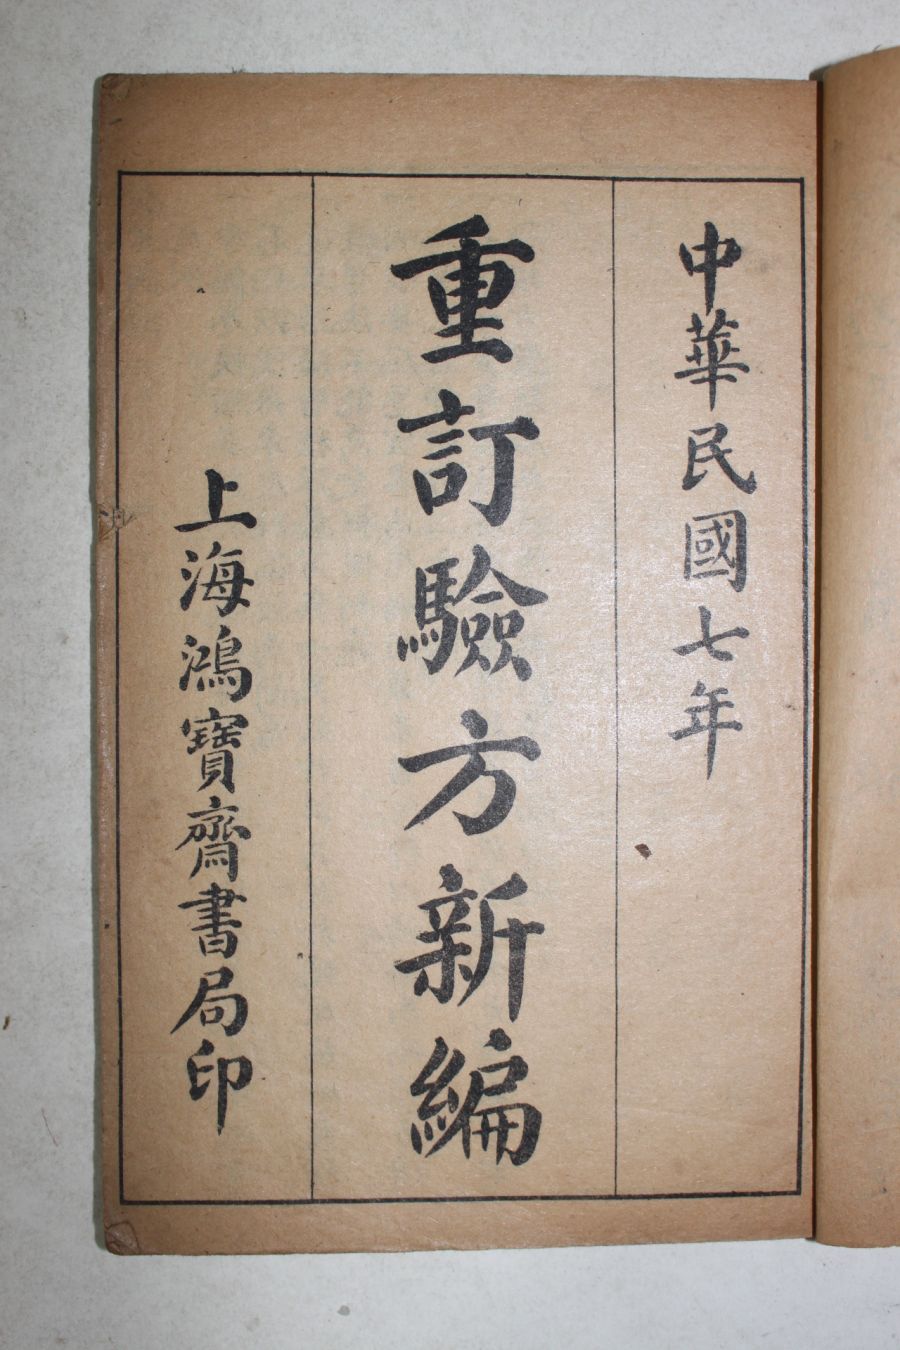 中華民國七年
重訂驗方新編
上海鴻寶齋書局印